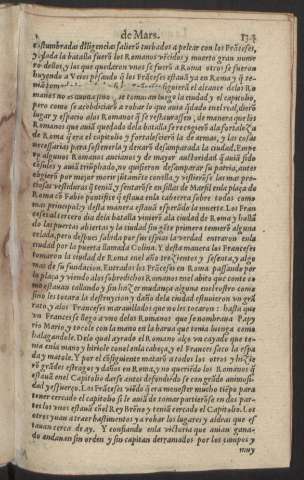 de Mars. 134
costumbradas diligencias salierõ turbados a pelear con los Frãceses,
y toda la batalla fuerõ los Romanos vẽcidos y muerto gran nume
ro dellos, y los que quedaron vnos se fuerõ a Roma otros se fueron
huyendo a Veios pẽsando q̃ los Frãceses estauã ya en Roma y q̃ te
siguierã el alcance delos Ro
manos no es cuenta sino se tomaran luego la ciudad y el capitolio,
pero como se acobdiciarõ a robar lo que auia q̃dado enel real, dierõ
lugar y espacio alos Romanos q̃ se restaurassen, de manera que los
Romanos que auiã quedado dela batalla se recogierõ ala fortaleza
de Roma q̃ era el capitolio y fortalescierõ la de armas, y las cosas
necessarias para sostenerla y dexarõ desamparada la ciudad. Empe
ro algunos Romanos ancianos y de mayor auctoridad q̃ auiã sido
cõsules y auiã triumphado, no quisieron desamparar su patria, antes
eligierõ por mejor morir juntamẽte conella, y vistierõse las mas pre
ciosas vestiduras q̃ teniã, y sentarõse en sillas de Marfil enla plaça de
Roma
mas principales y desta manera estauã esperãdo la muerte. Los Fran
ceses al tercero dia dela batalla vinierõ ala ciudad de Roma y hallã
do las puertas abiertas y la ciudad sin gẽte primero temierõ alguna
celada, pero despues sabida por sus espias la verdad entraron enla
ciudad por la puerta llamada Colina. Y desta manera los Franceses
tomaron la ciudad de Roma enel año trezientos y sesenta, y algo
mas de su fundacion. Entrados los Frãceses en Roma passando por
la plaça y viendo alos sobredichos Romanos enel abito que conto co
mo estauan callando y sin hazer mudança alguna enel rostro como
sino les tocara la destruycion y daño dela ciudad estuuieron vn grã
rato, y alos Franceses marauillados que no les tocaron: hasta que
vn Frances se llego a vno delos Romanos que se nombraua Papy
rio Mario, y tocole con la mano en la barua que tenia luenga como
halagandole. Delo qual ayrado el Romano alço vn cayado que te
nia enla mano y hiriole conel enla cabeça, y el Frances saco la espa
da y matole. Y por el cõsiguiente mataro a todos los otros y hizie
rõ grãdes estragos y daños en Roma, y no queriẽdo los Romanos q̃
estauã enel Capitolio darse antes defendiẽdose con grãde animosi-
dad y esfuerço. Los Frãceses viẽdo q̃ era menester mucho tiẽpo para
tener cercado el capitolio si le auiã de tomar partierõse en dos par-
tes los vnos estauã cõel Rey Brẽno y teniã cercado el Capitolio. Los
otros yuan a traer bastimentos y a robar los lugares y aldeas que es
tauan cerca de ay. Y confiando enla victoria que auian gana-
do andauan sin orden y sin capitan derramados por los campos y
muy